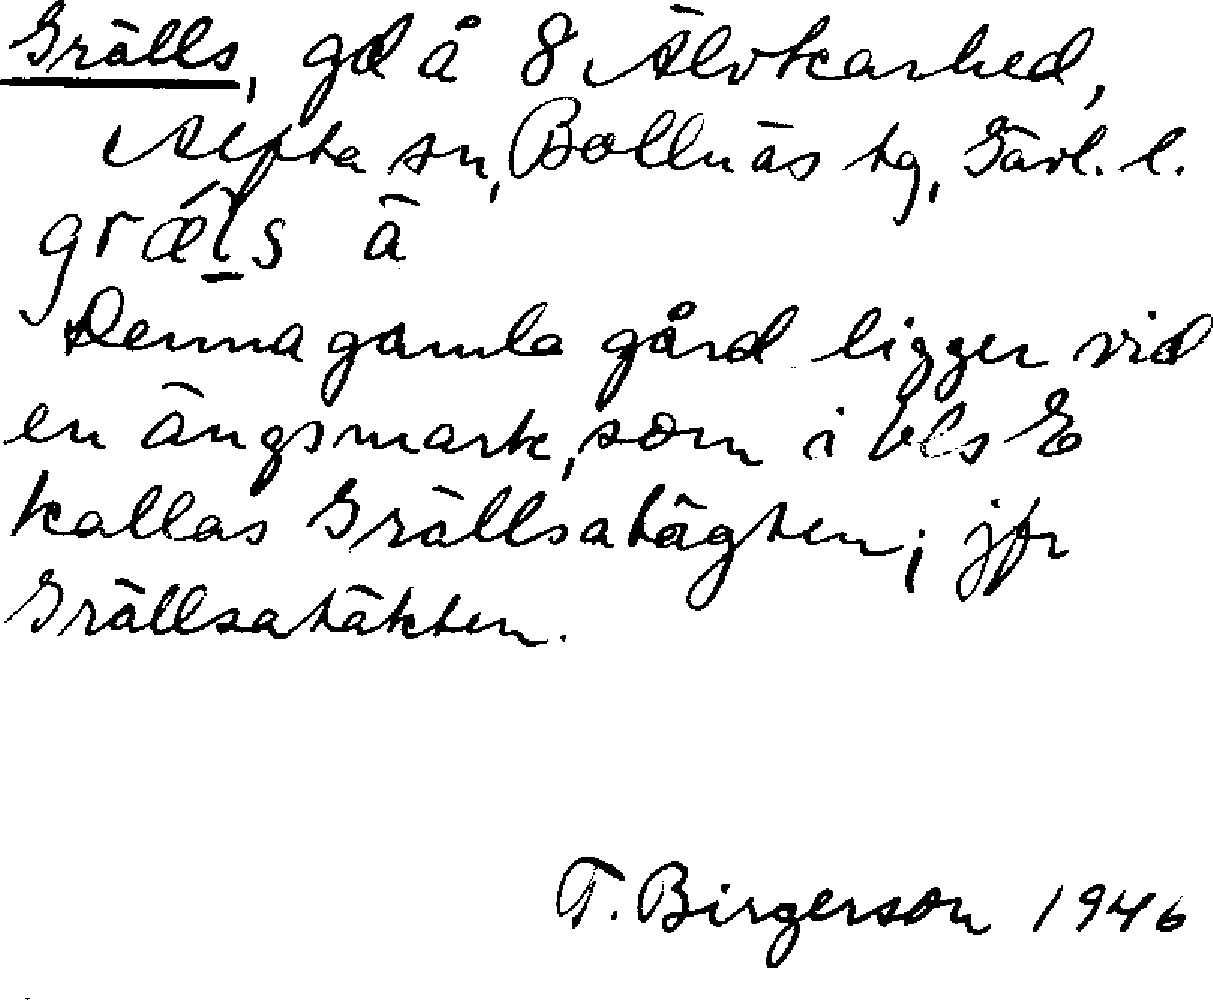 Grälls, gd å 8 Älvkarhed,
Alfta sn, Bollnäs tg, Gävl. l.
græ̀l̠s ā
Denna gamla gård ligger vid
en ängsmark, som i bls E
kallas Grällsatägten; jfr
Grällsatäkten.
T. Birgerson 1946